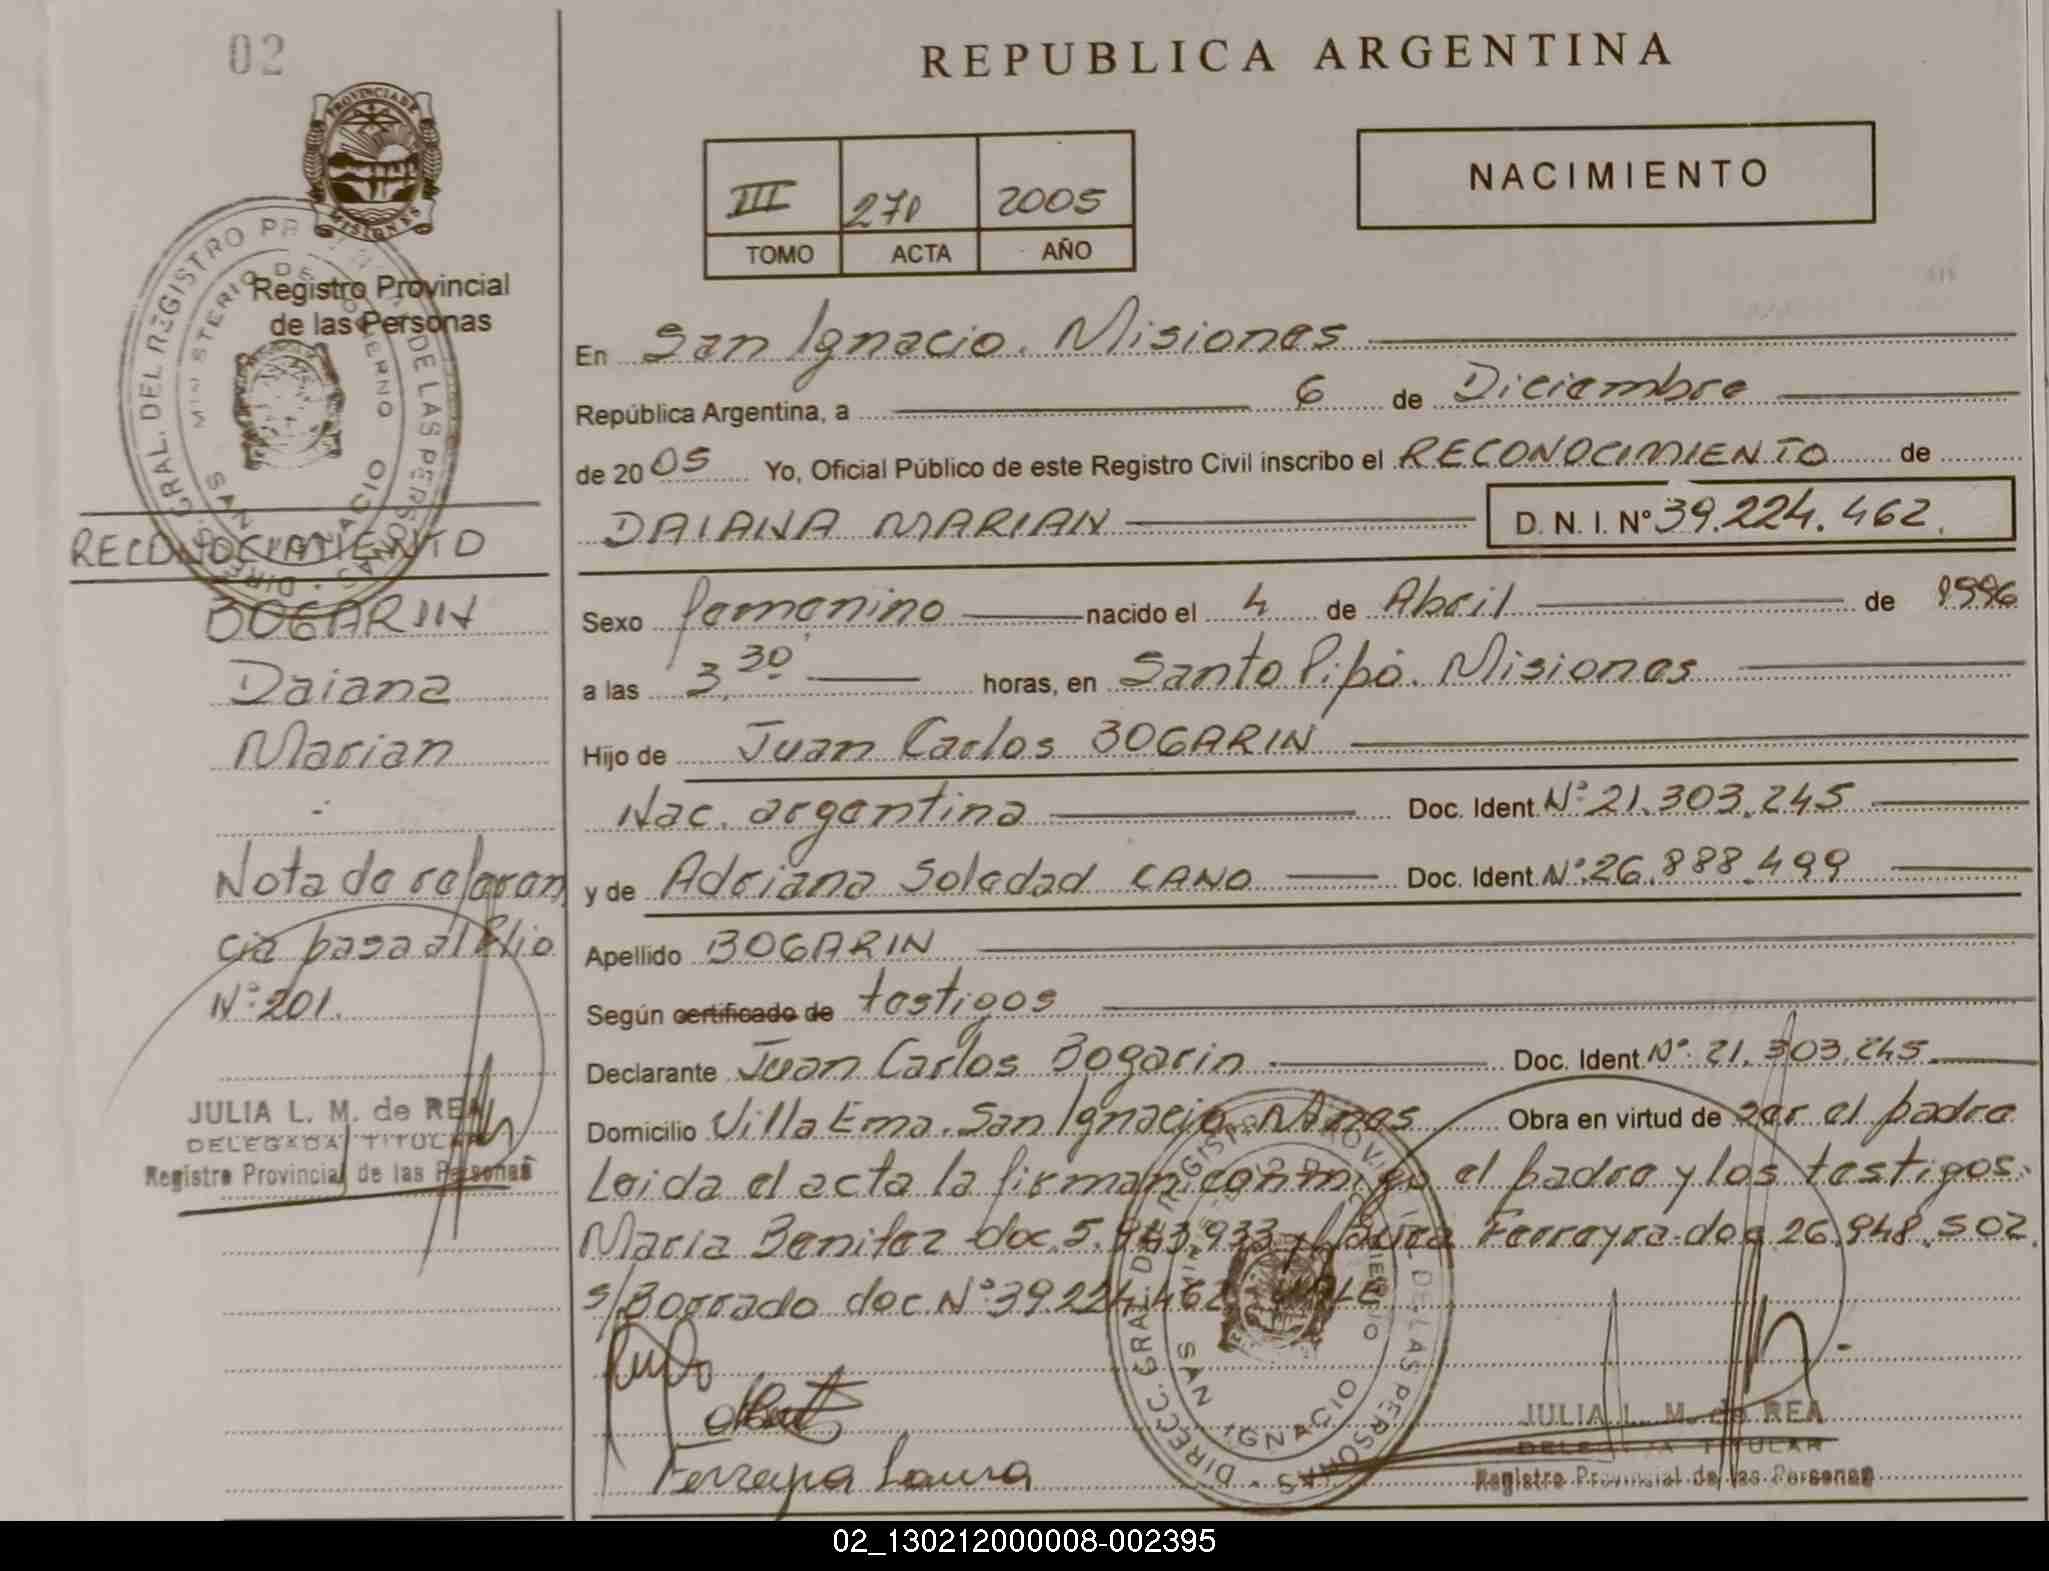 02
REPUBLICA ARGENTINA
PROVINCIA DE MISIONES
Registro Provincial
de las Personas
III 270 2005
TOMO ACTA AÑO
NACIMIENTO
En San Ignacio. Misiones
República Argentina, a 6 de Diciembre
de 2005 Yo, Oficial Público de este Registro Civil inscribo el RECONOCIMIENTO de
DAIANA MARIAN D. N. I. Nº 39.224.462.
Sexo femenino nacido el 4 de Abril de 1996
a las 3,30 horas, en Santo Pipó. Misiones
Hijo de Juan Carlos BOGARIN
Nac. argentina Doc. Ident. Nº 21.303.245
y de Adriana Soledad CANO Doc. Ident. Nº 26.888.499
Apellido BOGARIN
Según certificado de testigos
Declarante Juan Carlos Bogarin Doc. Ident. Nº 21.303.245
Domicilio Villa Ema. San Ignacio Mnes Obra en virtud de ser el padre
Leida el acta la firman conmigo el padre y los testigos:
Maria Benitez doc. 5.943.933 y Laura Ferreyra doc 26.948.502.
s/Borrado doc Nº 39.224.462 VALE
Ferreyra Laura
JULIA L. M. de REA
DELEGADA TITULAR
Registro Provincial de las Personas
DIRECC. GRAL. DEL REGISTRO PROVINCIAL DE LAS PERSONAS
MINISTERIO DE GOBIERNO
SAN IGNACIO
RECONOCIMIENTO
BOGARIN
Daiana
Marian
Nota de referen
cia pasa al folio
Nº 201.
JULIA L. M. de REA
DELEGADA TITULAR
Registro Provincial de las Personas
DIRECC. GRAL. DEL REGISTRO PROVINCIAL DE LAS PERSONAS
MINISTERIO DE GOBIERNO
SAN IGNACIO
02_130212000008-002395